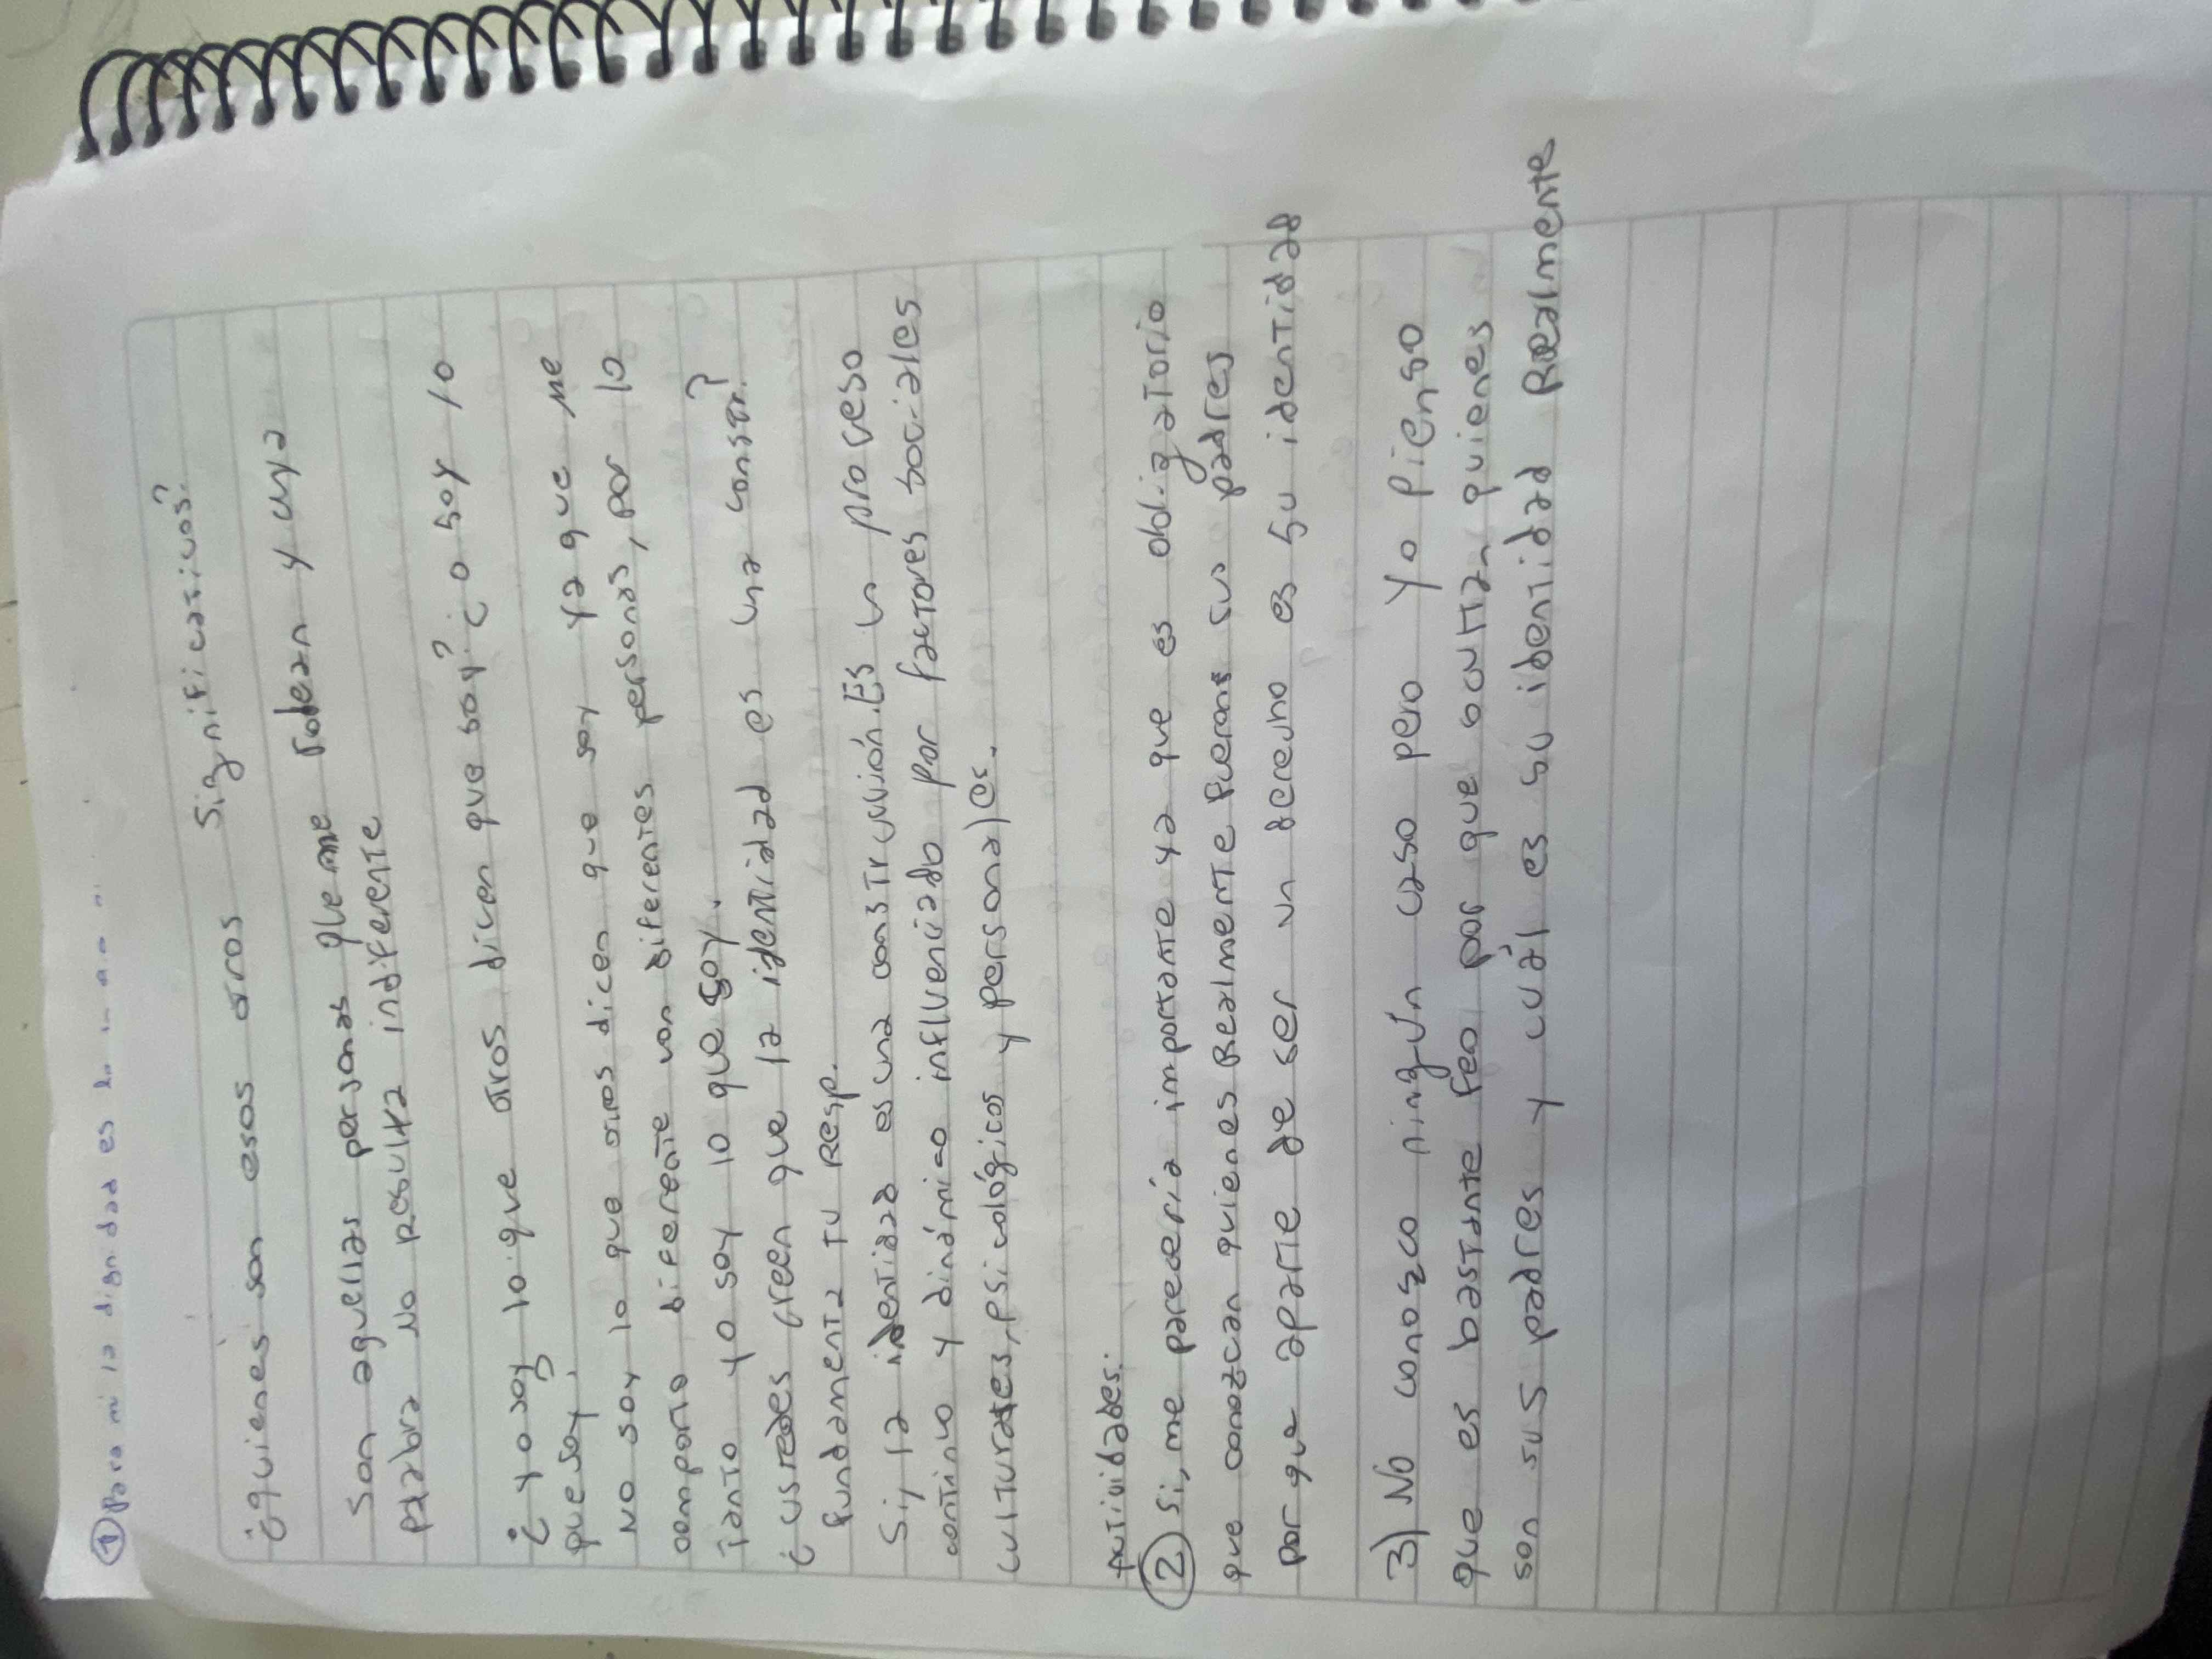 ① Para mi la dignidad es
¿quienes son esos otros significaticos?
son aquellas personas que me rodean y cuya
palabra no resulta indiferente
¿yo soy lo que otros dicen que soy? ¿o soy lo
que soy.
No soy lo que otros dicen que soy ya que me
comporto diferente con diferentes personas, por lo
tanto yo soy lo que soy.
¿ustedes creen que la identidad es una constr.?
fundamenta tu resp.
Si, la identidad es una construcción. Es un proceso
continuo y dinámico influenciado por factores sociales
culturales, psicológicos y personales.
Actividades:
② Si, me parecería importante ya que es obligatorio
que conozcan quienes Realmente fueron sus padres
por que aparte de ser un derecho es su identidad
3) No conozco ningún caso pero yo pienso
que es bastante feo por que ocultan quienes
son sus padres y cuál es su identidad Realmente